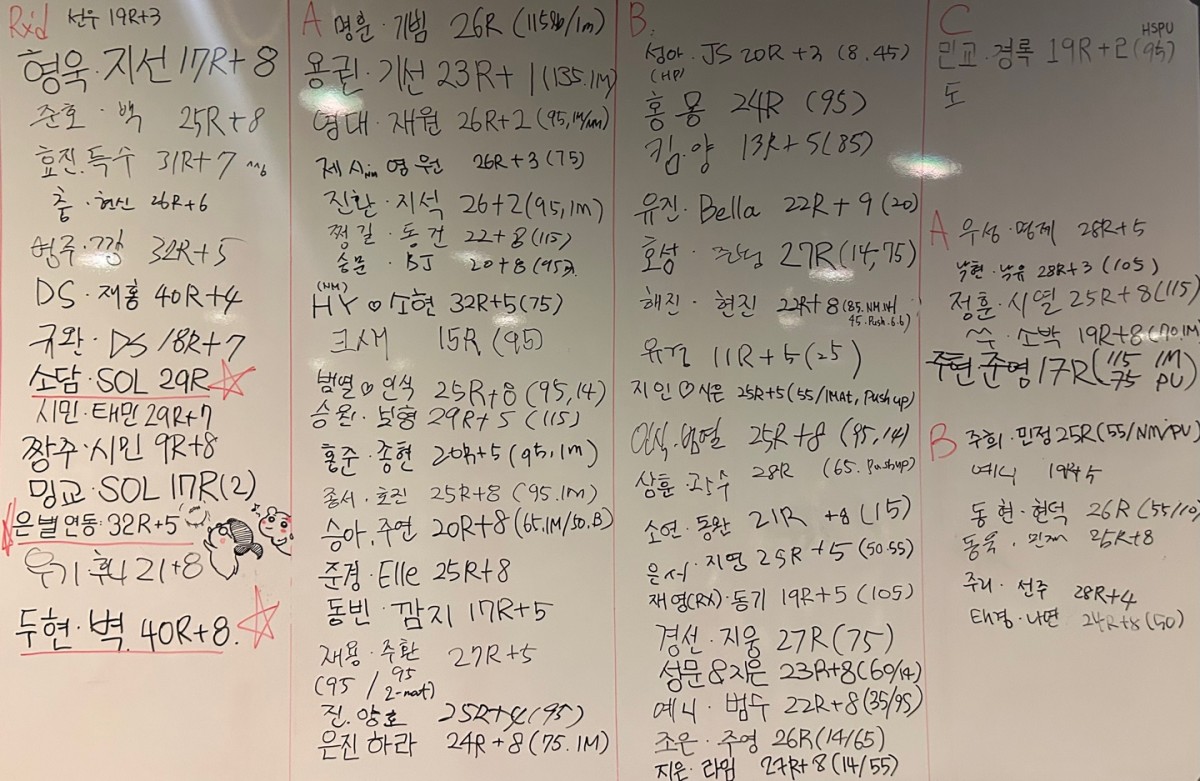 Rx'd 선우 19R+3
형욱·지선 17R+8
준호·백 25R+8
효진.득수 31R+7
춤·현신 26R+6
범주·깡 32R+5
DS·재홍 40R+4
규완·DS 18R+7
소담·SOL 29R
시민·태민 29R+7
짱주·시민 9R+8
밍교·SOL 17R(2)
은별 연동·32R+5
우기 후니 21+8
두현·벽 40R+8.
A 명훈·기범 26R (115lb/1m)
용권·기선 23R+1(135.1M)
영대·재원 26R+2(95,1M/NM)
제시NM 영원 26R+3(75)
진환·지석 26+2(95,1m)
쩡길·동건 22+8(115)
승문·BJ 20+8(95)
(NM)
HY♡소현 32R+5(75)
크새 15R (95)
범열♡인식 25R+8 (95,14)
승원·보형 29R+5 (115)
홍준·종현 20R+5(95,1m)
종서·효진 25R+8 (95.1M)
승아.주연 20R+8(65.1M/50.B)
준경·Elle 25R+8
동빈·깜지 17R+5
재용·주환 27R+5
(95 / 95 2-mat)
진.양호 25R+4(95)
은진 하라 24R+8(75.1M)
B.
성아·JS 20R+3 (8.45)
(HP)
홍 몽 24R (95)
킴.양 13R+5(85)
유진·Bella 22R+9(20)
호성· 27R(14,75)
해진·현진 22R+8(85.NM
45.Push.6.6)
유경 11R+5(25)
지인♡시은 25R+5(55/1MAt, Push up)
인식.범열 25R+8 (95,14)
상훈·광수 28R (65.Pushup)
소연·동완 21R +8(15)
은서·지연 25R+5(50.55)
재영(RX)·동기 19R+5(105)
경선·지웅 27R(75)
성문&지은 23R+8(60/14)
예니·범수 22R+8(35/95)
조은·주영 26R(14/65)
지은·라임 27R+8(14/55)
C
HSPU
민교·경록 19R+2(95)
도
A 우성·명제 28R+5
낙현·낙유 28R+3 (105)
정훈·시열 25R+8(115)
쓰·소박 19R+8(70.1M)
주현 준영 17R(115 1M
75 PU)
B 주희·민정 25R(55/NM/PU)
예니 19+5
동현·현덕 26R(55/10
동욱.민재 25R+8
주리·선주 28R+4
태경·나연 24R+8(50)